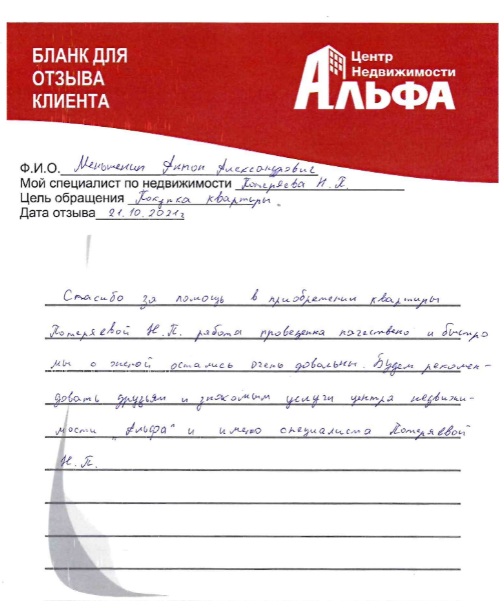 БЛАНК ДЛЯ
ОТЗЫВА
КЛИЕНТА
Центр
Недвижимости
АЛЬФА
Ф.И.О. Меньшенин Антон Александрович
Мой специалист по недвижимости Потеряева Н.П.
Цель обращения Покупка квартиры.
Дата отзыва 21.10.2021г
Спасибо за помощь в приобретении квартиры
Потеряевой Н.П. работа проведена качествено и быстро
мы с женой остались очень довольны. Будем рекомен-
довать друзьям и знакомым услуги центра недвижи-
мости "Альфа" и имено специалиста Потеряевой
Н.П.